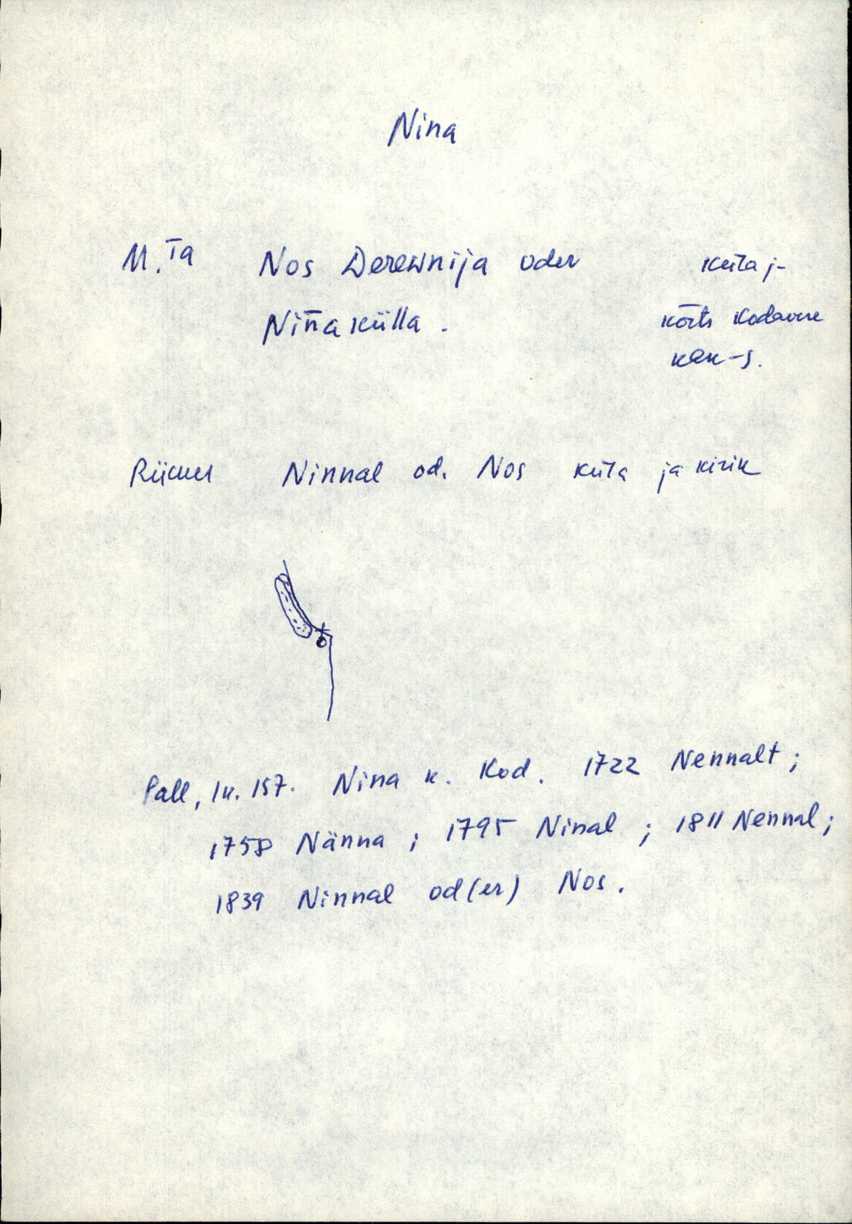 Nina
M. Ta Nos Derewnija oder küla j-
Niñakülla. kõrts Kodavere
kek-s.
Rücker Ninnal od. Nos küla ja kirik
Pall, lk. 157. Nina k. Kod. 1722 Nennalt;
1758 Nänna; 1795 Ninal; 1811 Nennal;
1839 Ninnal od(er) Nos.